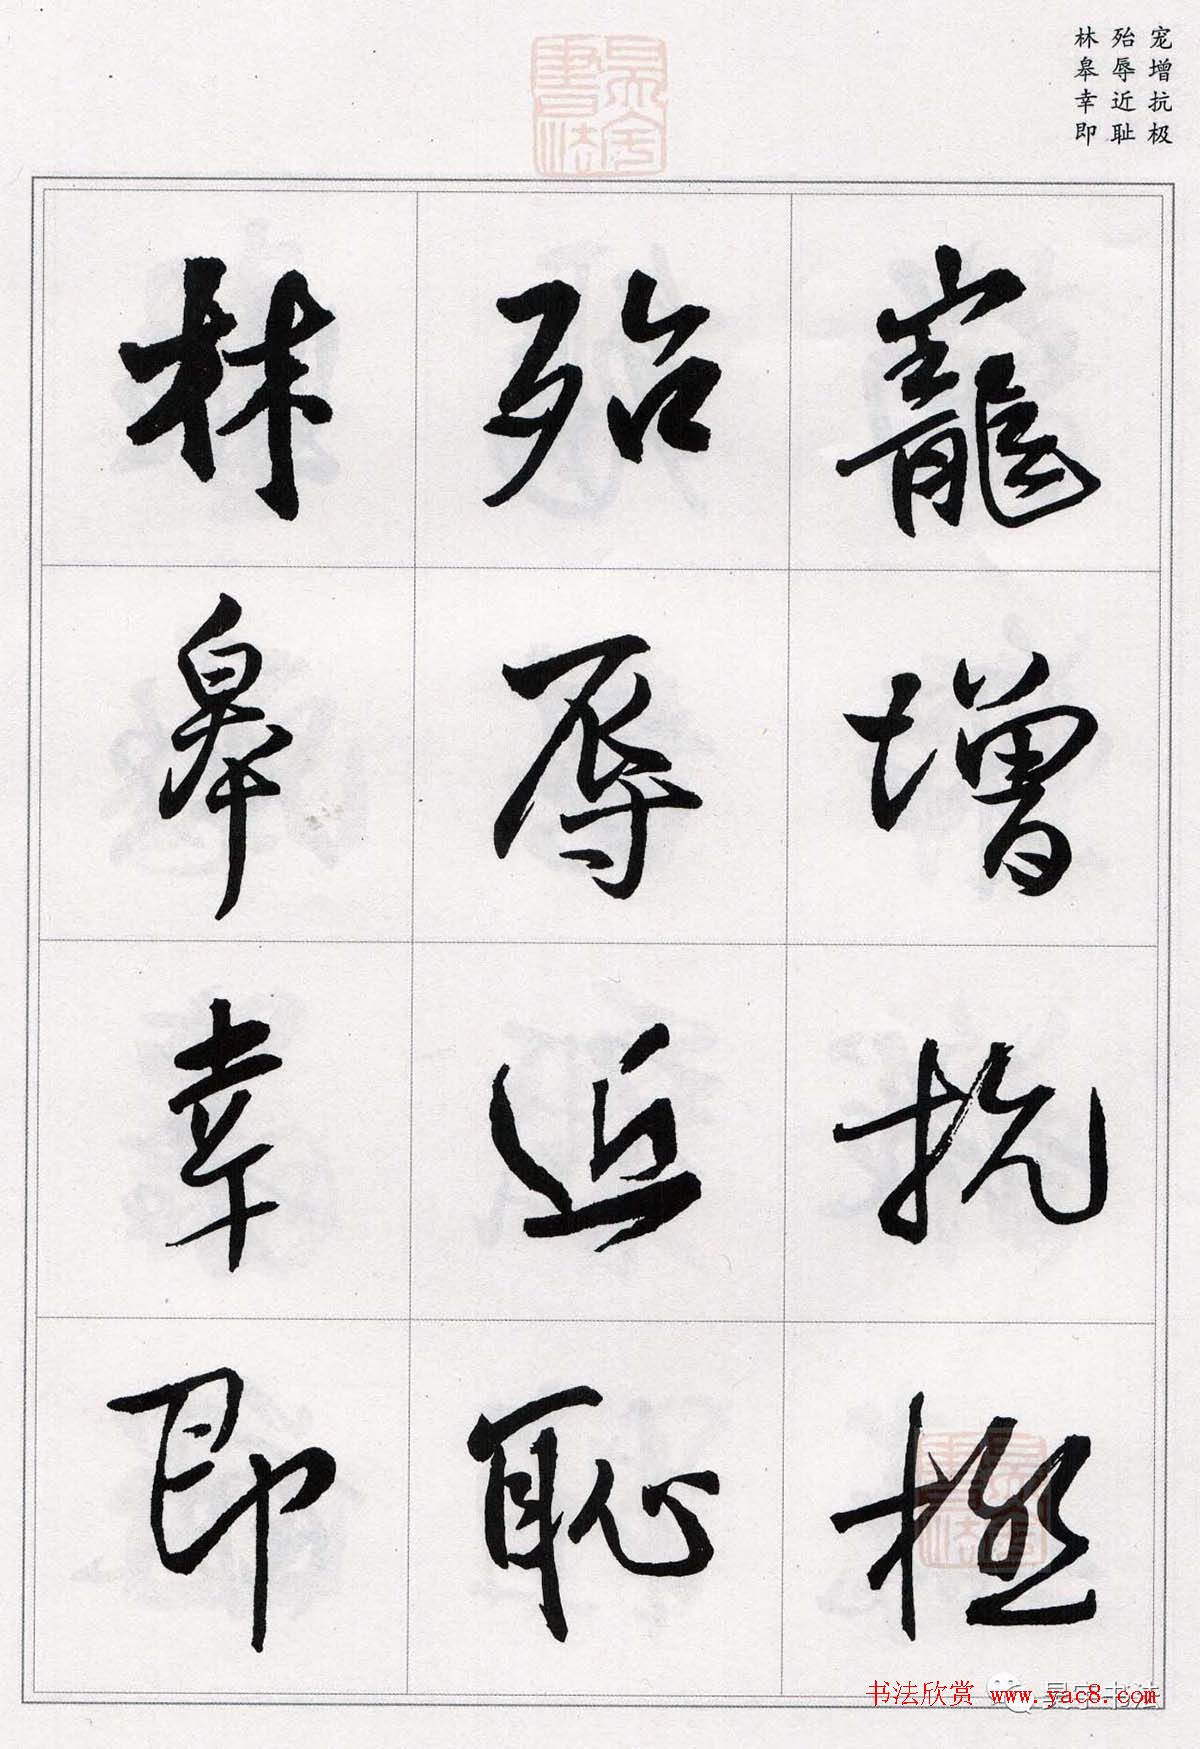 宠增抗极
殆辱近耻
林皋幸即
寵增抗極
殆辱近恥
林皋幸即
书法欣赏 www.yac8.com